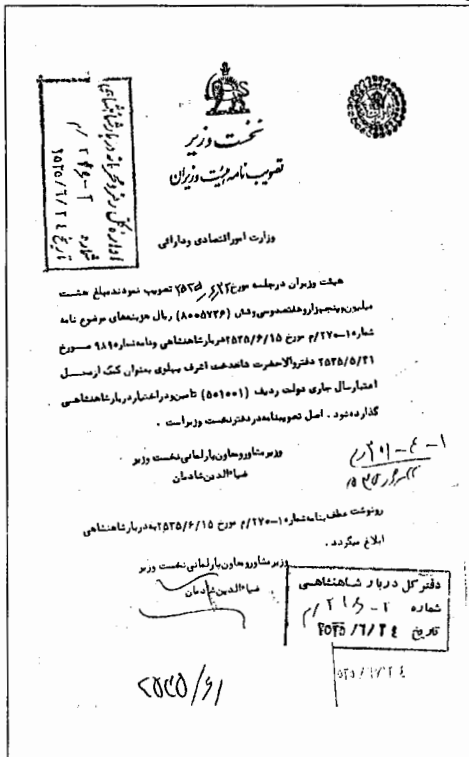 نخست وزیر
تصویب نامه هیئت وزیران
اداره کل رمز و محرمانه دربار شاهنشاهی
شماره ۲-۲۴۶/م
تاریخ ۲۵۳۵/۶/۲۴
وزارت امور اقتصادی و دارائی
هیئت وزیران در جلسه مورخ تصویب نمودند مبلغ هشت
میلیون و پنجهزار و هفتصد و سی و شش (۸۰۰۵۷۳۶) ریال هزینه‌های موضوع نامه
شماره ۱۰-۲۷۰/م مورخ ۲۵۳۵/۶/۱۵ دربار شاهنشاهی و نامه شماره ۹۸۹۰ مورخ
۲۵۳۵/۵/۳۱ دفتر والاحضرت شاهدخت اشرف پهلوی بعنوان کمک از محل
اعتبار سال جاری دولت ردیف (۵۰۱۰۰۱) تامین و در اختیار دربار شاهنشاهی
گذارده شود . اصل تصویبنامه در دفتر نخست وزیر است .
وزیر مشاور و معاون پارلمانی نخست وزیر
ضیاءالدین شادمان
رونوشت عطف بنامه شماره ۱۰-۲۷۰/م مورخ ۲۵۳۵/۶/۱۵ به دربار شاهنشاهی
ابلاغ میگردد .
وزیر مشاور و معاون پارلمانی نخست وزیر
ضیاءالدین شادمان
دفتر کل دربار شاهنشاهی
شماره ۲-۲۴۶/م
تاریخ ۲۵۳۵/۶/۲۴